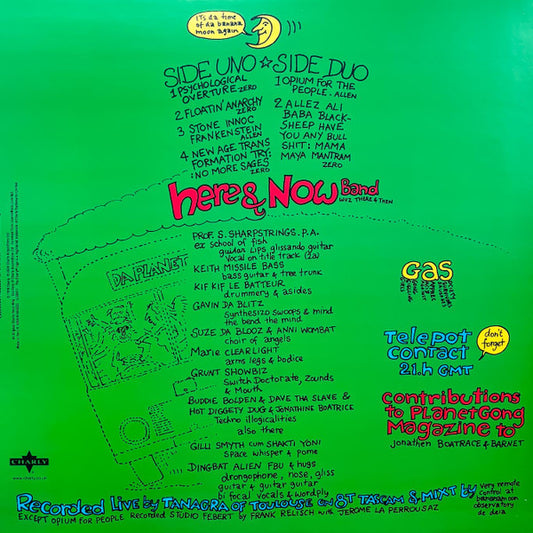 ITs da time
of da banana
moon again
SIDE UNO ☆ SIDE DUO
1 PSYCHOLOGICAL
OVERTURE ZERO
2 FLOATIN' ANARCHY
ZERO
3 STONE INNOC
FRANKENSTEIN
ALLEN
4 NEW AGE TRANS
FORMATION TRY:
:NO MORE SAGES
ZERO
1 OPIUM FOR THE
PEOPLE. ALLEN
2 ALLEZ ALI
BABA BLACK-
SHEEP HAVE
YOU ANY BULL
SHIT: MAMA
MAYA MANTRAM
ZERO
here & NOW Band
WUZ THERE & THEN
DA PLANET
PROF. S. SHARPSTRINGS. P.A.
ex school of fish
guidas Lips glissando guitar
Vocal on title track (2a)
KEITH MISSILE BASS
bass guitar & tree trunk
KIF KIF LE BATTEUR
drummery & asides
GAVIN DA BLITZ
Synthesizo swoops & mind
the bend the mind
SUZE DA BLOOZ & ANNI WOMBAT
choir of angels
Marie CLEARLIGHT
arms legs & bodice
GRUNT SHOWBIZ
Switch Doctorate, Zounds
& Mouth
BUDDIE BOLDEN & DAVE THA SLAVE &
HOT DIGGETY DUG & JONATHINE BOATRICE
Techno illogicalities
also there
GILLI SMYTH cum SHAKTI YONI
Space whisper & pome
DINGBAT ALIEN FBU & hugs
drongophone, nose, gliss
guitar & guitar guitar
bi focal vocals & wordply
GAS
Telepot
contact
21.h GMT
don't
forget
contributions
to PlanetGong
Magazine to
Jonathen BOATRACE & BARNET
CHARLY
www.charly.co.uk
Recorded Live by TANAGRA OF TOULOUSE on 8T TASCAM & MIXT by
very remote
control at
bananamoon
observatory
de deia
EXCEPT OPIUM FOR PEOPLE Recorded STUDIO FEBERT by FRANK RELISCH with JEROME LA PERROUSAZ